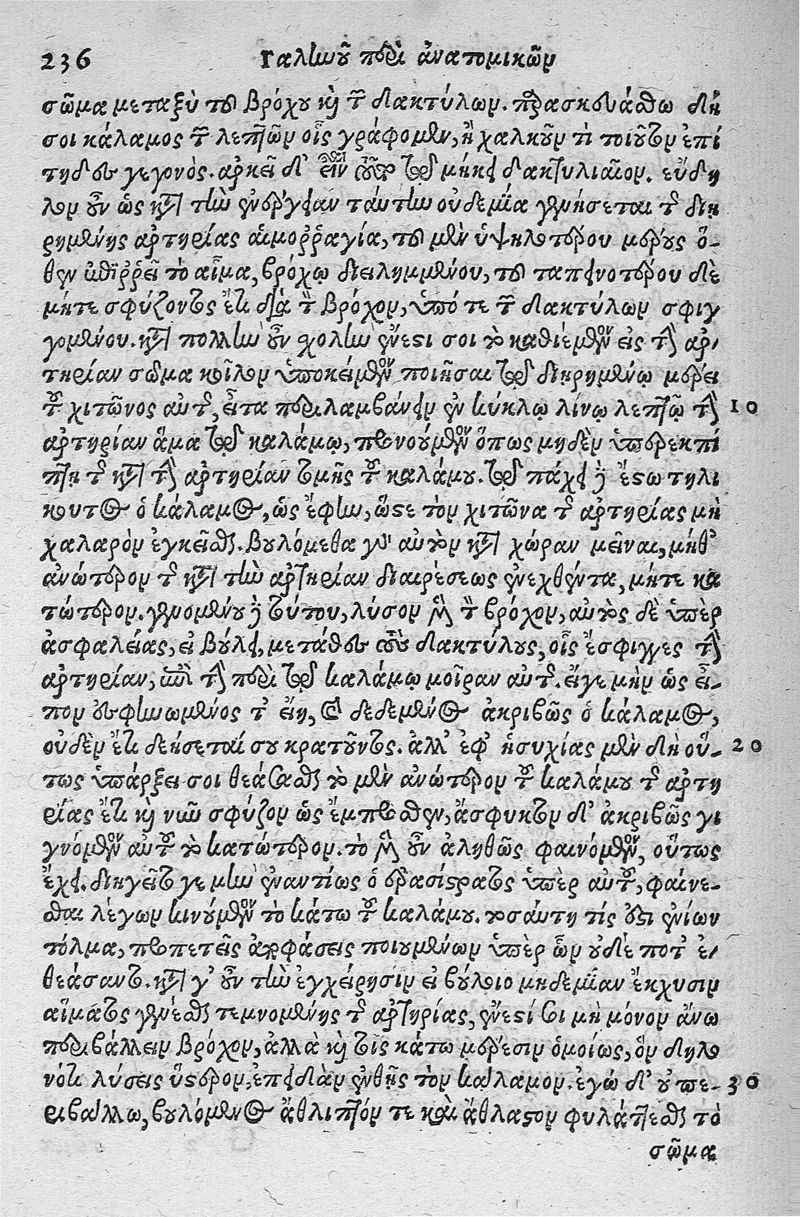 236 Γαληνοῦ περὶ ἀνατομικῶν
σῶμα μεταξὺ τοῦ βρόχου καὶ τῶν δακτύλων. παρασκευάσθω δή
σοι κάλαμος τῶν λεπτῶν οἷς γράφομεν, ἢ χαλκοῦν τι τοιοῦτον ἐπί
τηδες γεγονός. ἀρκεῖ δ' εἶναι τῷ μήκει δακτυλιαῖον. εὔδη
λον οὖν ὡς κατὰ τὴν ἐνέργειαν ταύτην οὐδεμία γενήσεται τῆς διῃ
ρημένης ἀρτηρίας αἱμοῤῥαγία, τοῦ μὲν ὑψηλοτέρου μέρους ὅ-
θεν ἐπιῤῥεῖ τὸ αἷμα, βρόχῳ διειλημμένου, τοῦ ταπεινοτέρου δὲ
μήτε σφύζοντος ἔτι διὰ τὸν βρόχον, ὑπό τε τῶν δακτύλων σφιγ
γομένου. κατὰ πολλὴν οὖν σχολὴν ἔνεστί σοι τὸ καθιέμενον εἰς τὴν ἀρ-
τηρίαν σῶμα κοῖλον ὑποκείμενον ποιῆσαι τῷ διῃρημένῳ μέρει
τοῦ χιτῶνος αὐτῆς, εἶτα περιλαμβάνειν ἐν κύκλῳ λίνῳ λεπτῷ τὴν 10
ἀρτηρίαν ἅμα τῷ καλάμῳ, προνούμενον ὅπως μηδὲν ὑπερεκπί
πτῃ τῆς κατὰ τὴν ἀρτηρίαν τομῆς τοῦ καλάμου. τῷ πάχει δὲ ἔστω τηλι
κοῦτος ὁ κάλαμος, ὡς ἔφην, ὥστε τὸν χιτῶνα τῆς ἀρτηρίας μὴ
χαλαρὸν ἐγκεῖσθαι. βουλόμεθα γὰρ αὐτὸν κατὰ χώραν μεῖναι, μήθ'
ἀνώτερον τῆς κατὰ τὴν ἀρτηρίαν διαιρέσεως ἐνεχθέντα, μήτε κα
τώτερον. γενομένου δὲ τούτου, λῦσον μὲν τὸν βρόχον, αὐτὸς δὲ ὑπὲρ
ἀσφαλείας, εἰ βούλει, μετάθες τοὺς δακτύλους, οἷς ἔσφιγγες τὴν
ἀρτηρίαν, ἐπὶ τὴν περὶ τῷ καλάμῳ μοῖραν αὐτῆς. εἴγε μὴν ὡς εἶ-
πον ἐσφηνωμένος τ' εἴη, καὶ δεδεμένος ἀκριβῶς ὁ κάλαμος,
οὐδὲν ἔτι δεήσεταί σου κρατοῦντος. ἀλλ' ἐφ' ἡσυχίας μὲν δὴ οὕ- 20
τως ὑπάρξει σοι θεάσασθαι τὸ μὲν ἀνώτερον τοῦ καλάμου τῆς ἀρτη
ρίας ἔτι καὶ νῦν σφύζον ὡς ἔμπροσθεν, ἄσφυκτον δ' ἀκριβῶς γι
γνόμενον αὐτοῦ τὸ κατώτερον. τὸ μὲν οὖν ἀληθῶς φαινόμενον, οὕτως
ἔχει. διηγεῖτό γε μὴν ἐναντίως ὁ Ἐρασίστρατος ὑπὲρ αὐτοῦ, φαίνε-
σθαι λέγων κινούμενον τὸ κάτω τοῦ καλάμου. τοσαύτη τίς ἐστι ἐνίων
τόλμα, προπετεῖς ἀποφάσεις ποιουμένων ὑπὲρ ὧν οὐδέ ποτ' ἐ-
θεάσαντο. κατὰ γ' οὖν τὴν ἐγχείρησιν εἰ βούλοιο μηδεμίαν ἔκχυσιν
αἵματος γενέσθαι τεμνομένης τῆς ἀρτηρίας, ἔνεστί σοι μὴ μόνον ἄνω
περιβάλλειν βρόχον, ἀλλὰ καὶ τοῖς κάτω μέρεσιν ὁμοίως, ὃν δηλο
νότι λύσεις ὕστερον, ἐπειδὰν ἐνθῇς τὸν κάλαμον. ἐγὼ δ' οὐ πε- 30
ριβάλλω, βουλόμενος ἄθλιπτόν τε καὶ ἄθλαστον φυλάττεσθαι τὸ
σῶμα